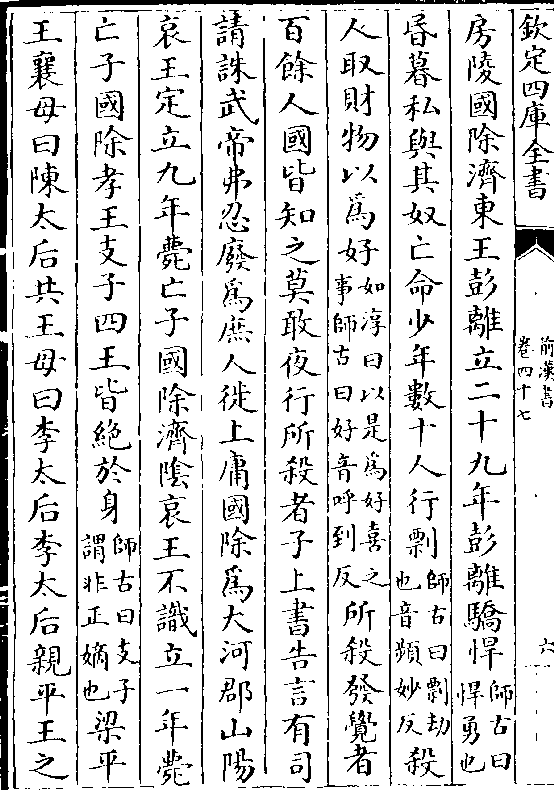 欽定四庫全書
前漢書
卷四十七
六
房陵國除濟東王彭離立二十九年彭離驕悍師古曰悍勇也
昬暮私與其奴亡命少年數十人行剽師古曰剽劫也音頻妙反殺
人取財物以為好如淳曰以是為好喜之事師古曰好音呼到反所殺發覺者
百餘人國皆知之莫敢夜行所殺者子上書告言有司
請誅武帝弗忍廢為庶人徙上庸國除為大河郡山陽
哀王定立九年薨亡子國除濟隂哀王不識立一年薨
亡子國除孝王支子四王皆絶於身師古曰支子謂非正嫡也梁平
王襄母曰陳太后共王母曰李太后李太后親平王之